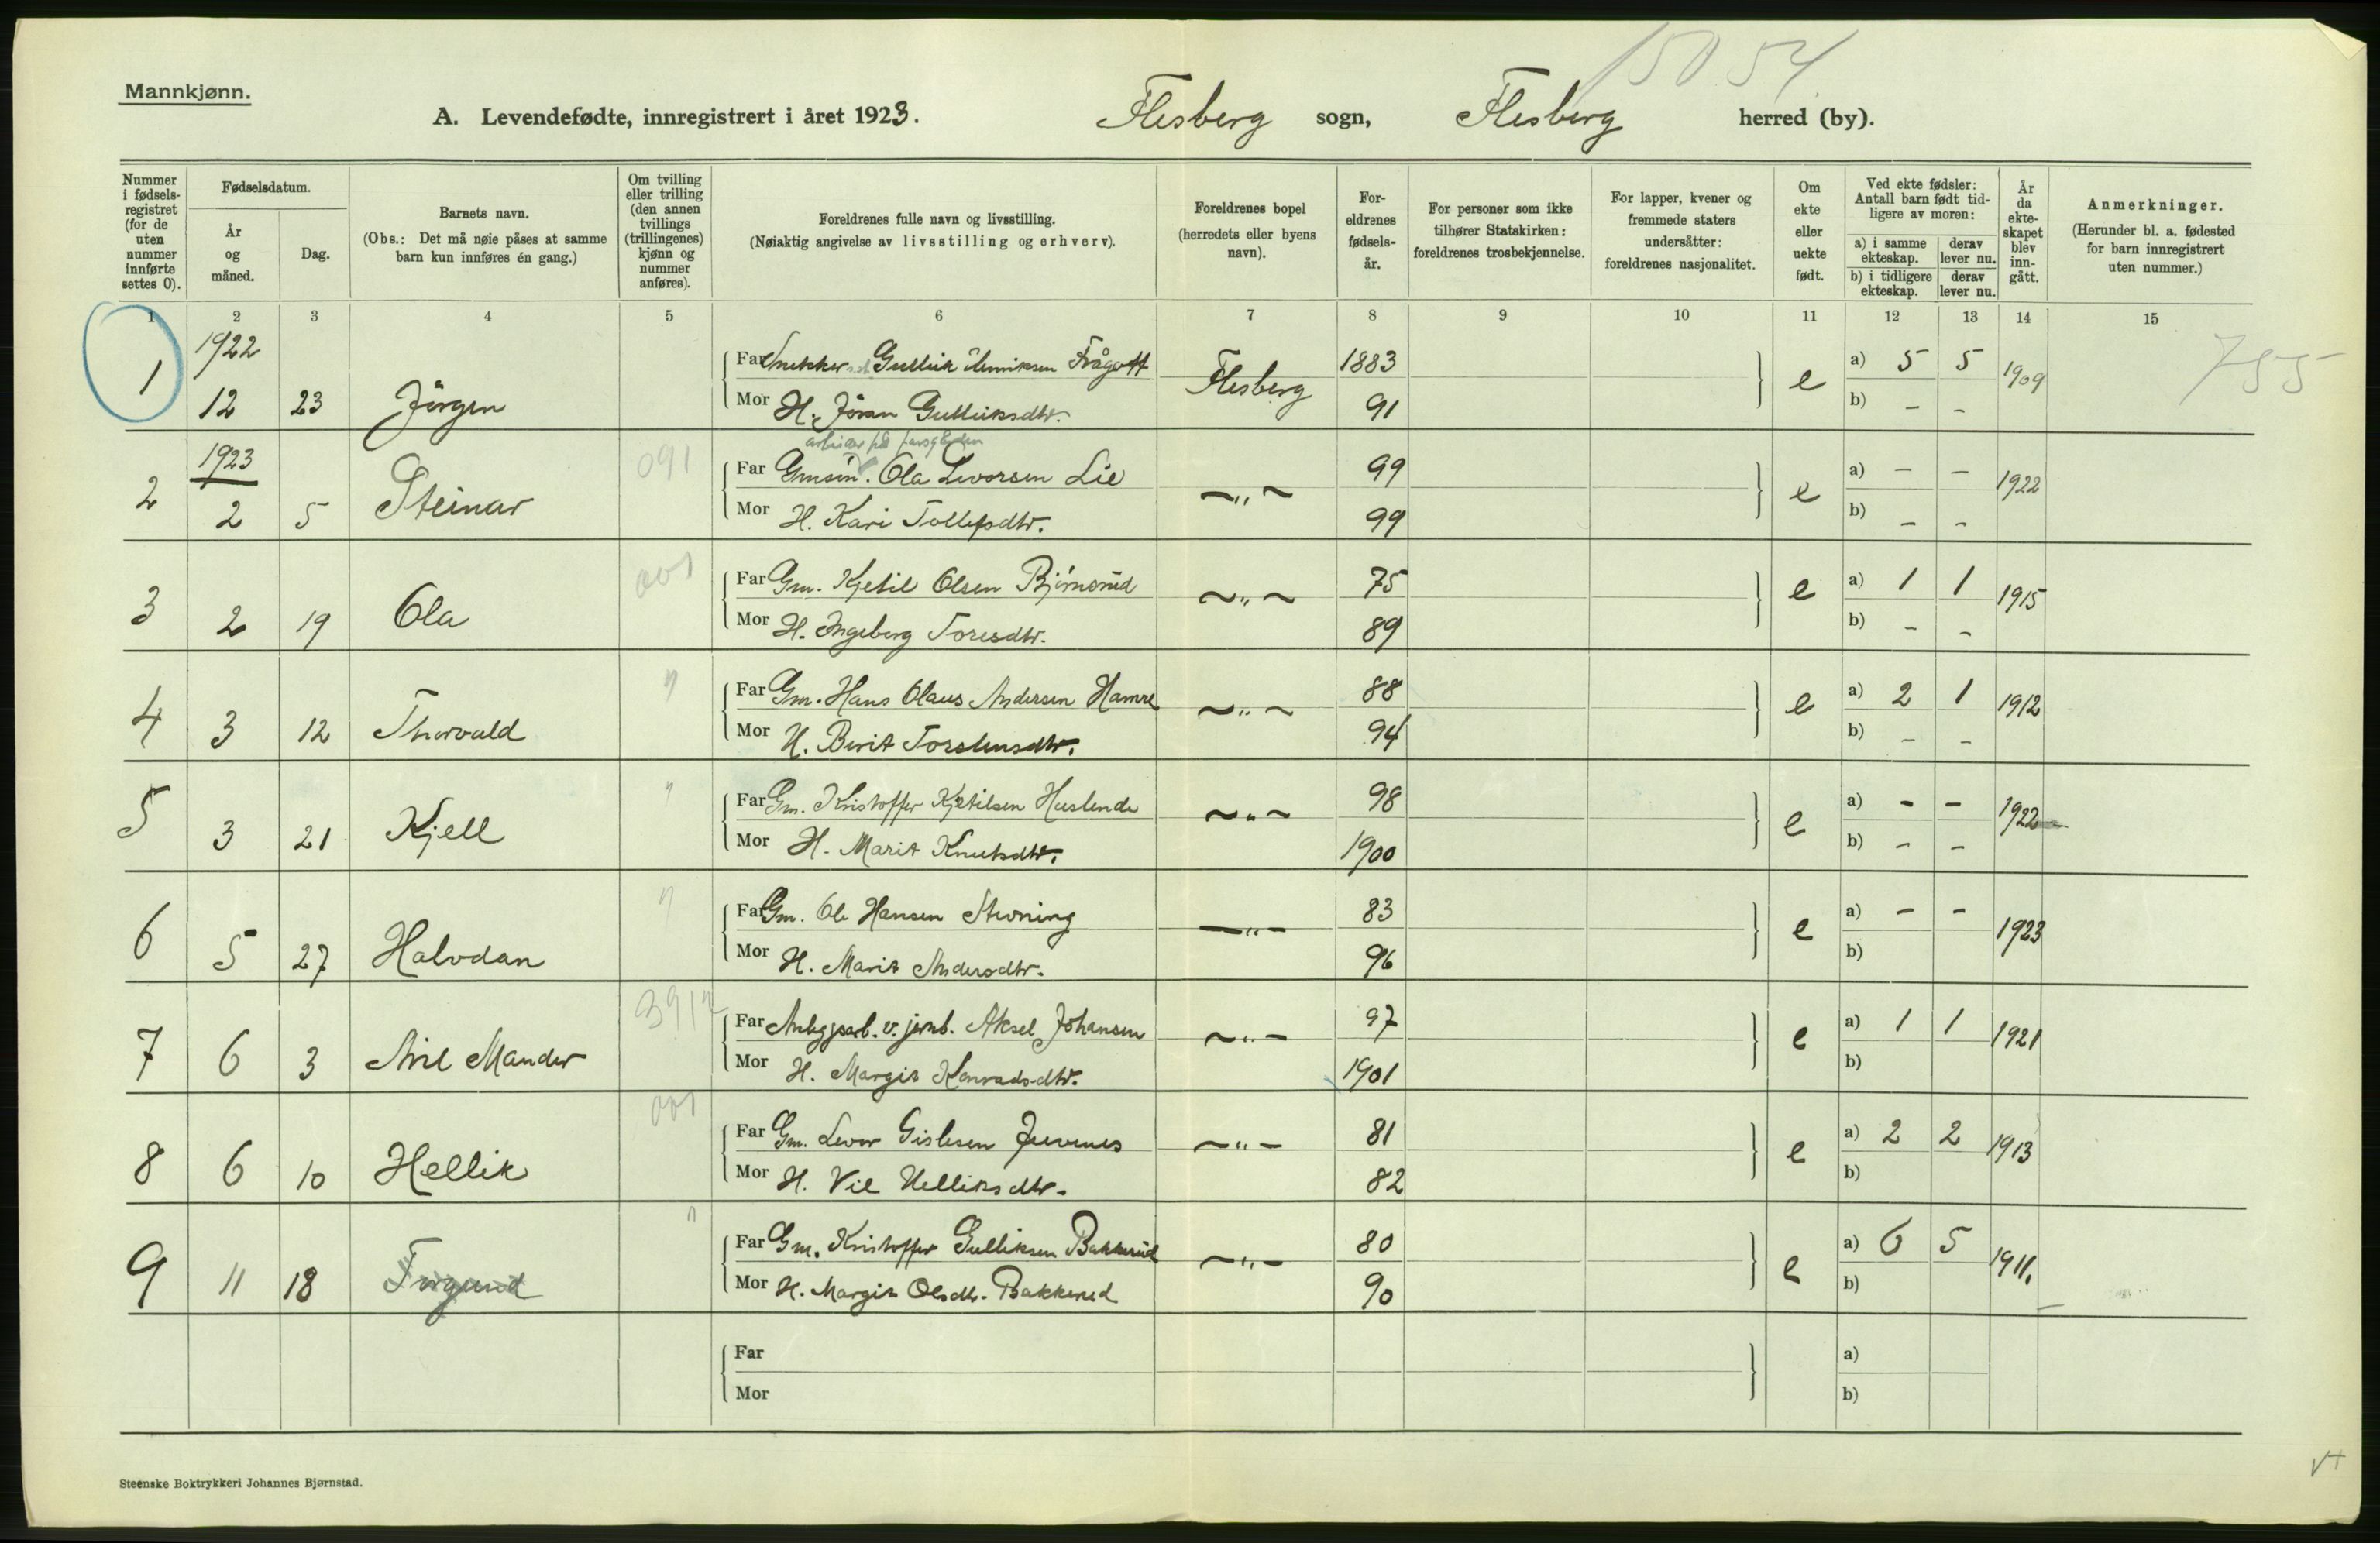 15054
Mannkjønn.
A. Levendefødte, innregistrert i året 1923. Flesberg sogn, Flesberg herred (by).
Nummer i fødselsregistret (for de uten nummer innførte settes 0).
Fødselsdatum.
År og måned.
Dag.
Barnets navn.
(Obs.: Det må nøie påses at samme barn kun innføres én gang.)
Om tvilling eller trilling (den annen tvillings (trillingenes) kjønn og nummer anføres).
Foreldrenes fulle navn og livsstilling.
(Nøiaktig angivelse av livsstilling og erhverv).
Foreldrenes bopel (herredets eller byens navn).
Foreldrenes fødselsår.
For personer som ikke tilhører Statskirken: foreldrenes trosbekjennelse.
For lapper, kvener og fremmede staters undersåtter: foreldrenes nasjonalitet.
Om ekte eller uekte født.
Ved ekte fødsler: Antall barn født tidligere av moren:
a) i samme ekteskap. derav lever nu.
b) i tidligere ekteskap. derav lever nu.
År da ekteskapet blev inngått.
Anmerkninger.
(Herunder bl. a. fødested for barn innregistrert uten nummer.)
1 2 3 4 5 6 7 8 9 10 11 12 13 14 15
1922
1 12 23 Jörgen
Far Snekker Gullik Henriksen Trågott Flesberg 1883 e a) 5 5 1909 755
Mor H. Jöran Gulliksdtr. 91 b) – –
1923
2 2 5 Steinar 091
arbeider på farsgården
Far Gmsön. Ola Levorsen Lie –„– 99 e a) – – 1922
Mor H. Kari Tollefsdtr. 99 b) – –
3 2 19 Ola 001
Far Gm. Kjetil Olsen Björnerud –„– 75 e a) 1 1 1915
Mor H. Ingeborg Toresdtr. 89 b) – –
4 3 12 Thorvald "
Far Gm. Hans Olaus Andersen Hamre –„– 88 e a) 2 1 1912
Mor H. Berit Torstensdtr. 94 b) – –
5 3 21 Kjell "
Far Gm. Kristoffer Kjetilsen Haslende –„– 98 e a) – – 1922
Mor H. Marit Knutsdtr. 1900 b) – –
6 5 27 Halvdan "
Far Gm. Ole Hansen –„– 83 e a) – – 1923
Mor H. Marit Andersdtr. 96 b)
7 6 3 3912
Far Anleggsarb. v. jernb. Aksel Johansen –„– 97 e a) 1 1 1921
Mor H. Margit Konradsdtr. 1901 b)
8 6 10 Hellik 001
Far Gm. Levor Gislesen Juvenes –„– 81 e a) 2 2 1913
Mor H. Vil Helliksdtr. 82 b)
9 11 18 Torgund "
Far Gm. Kristoffer Gulliksen Bakkerud –„– 80 e a) 6 5 1911.
Mor H. Margit Olsdtr. Bakkerud 90 b)
Far a)
Mor b)
Steenske Boktrykkeri Johannes Bjørnstad.